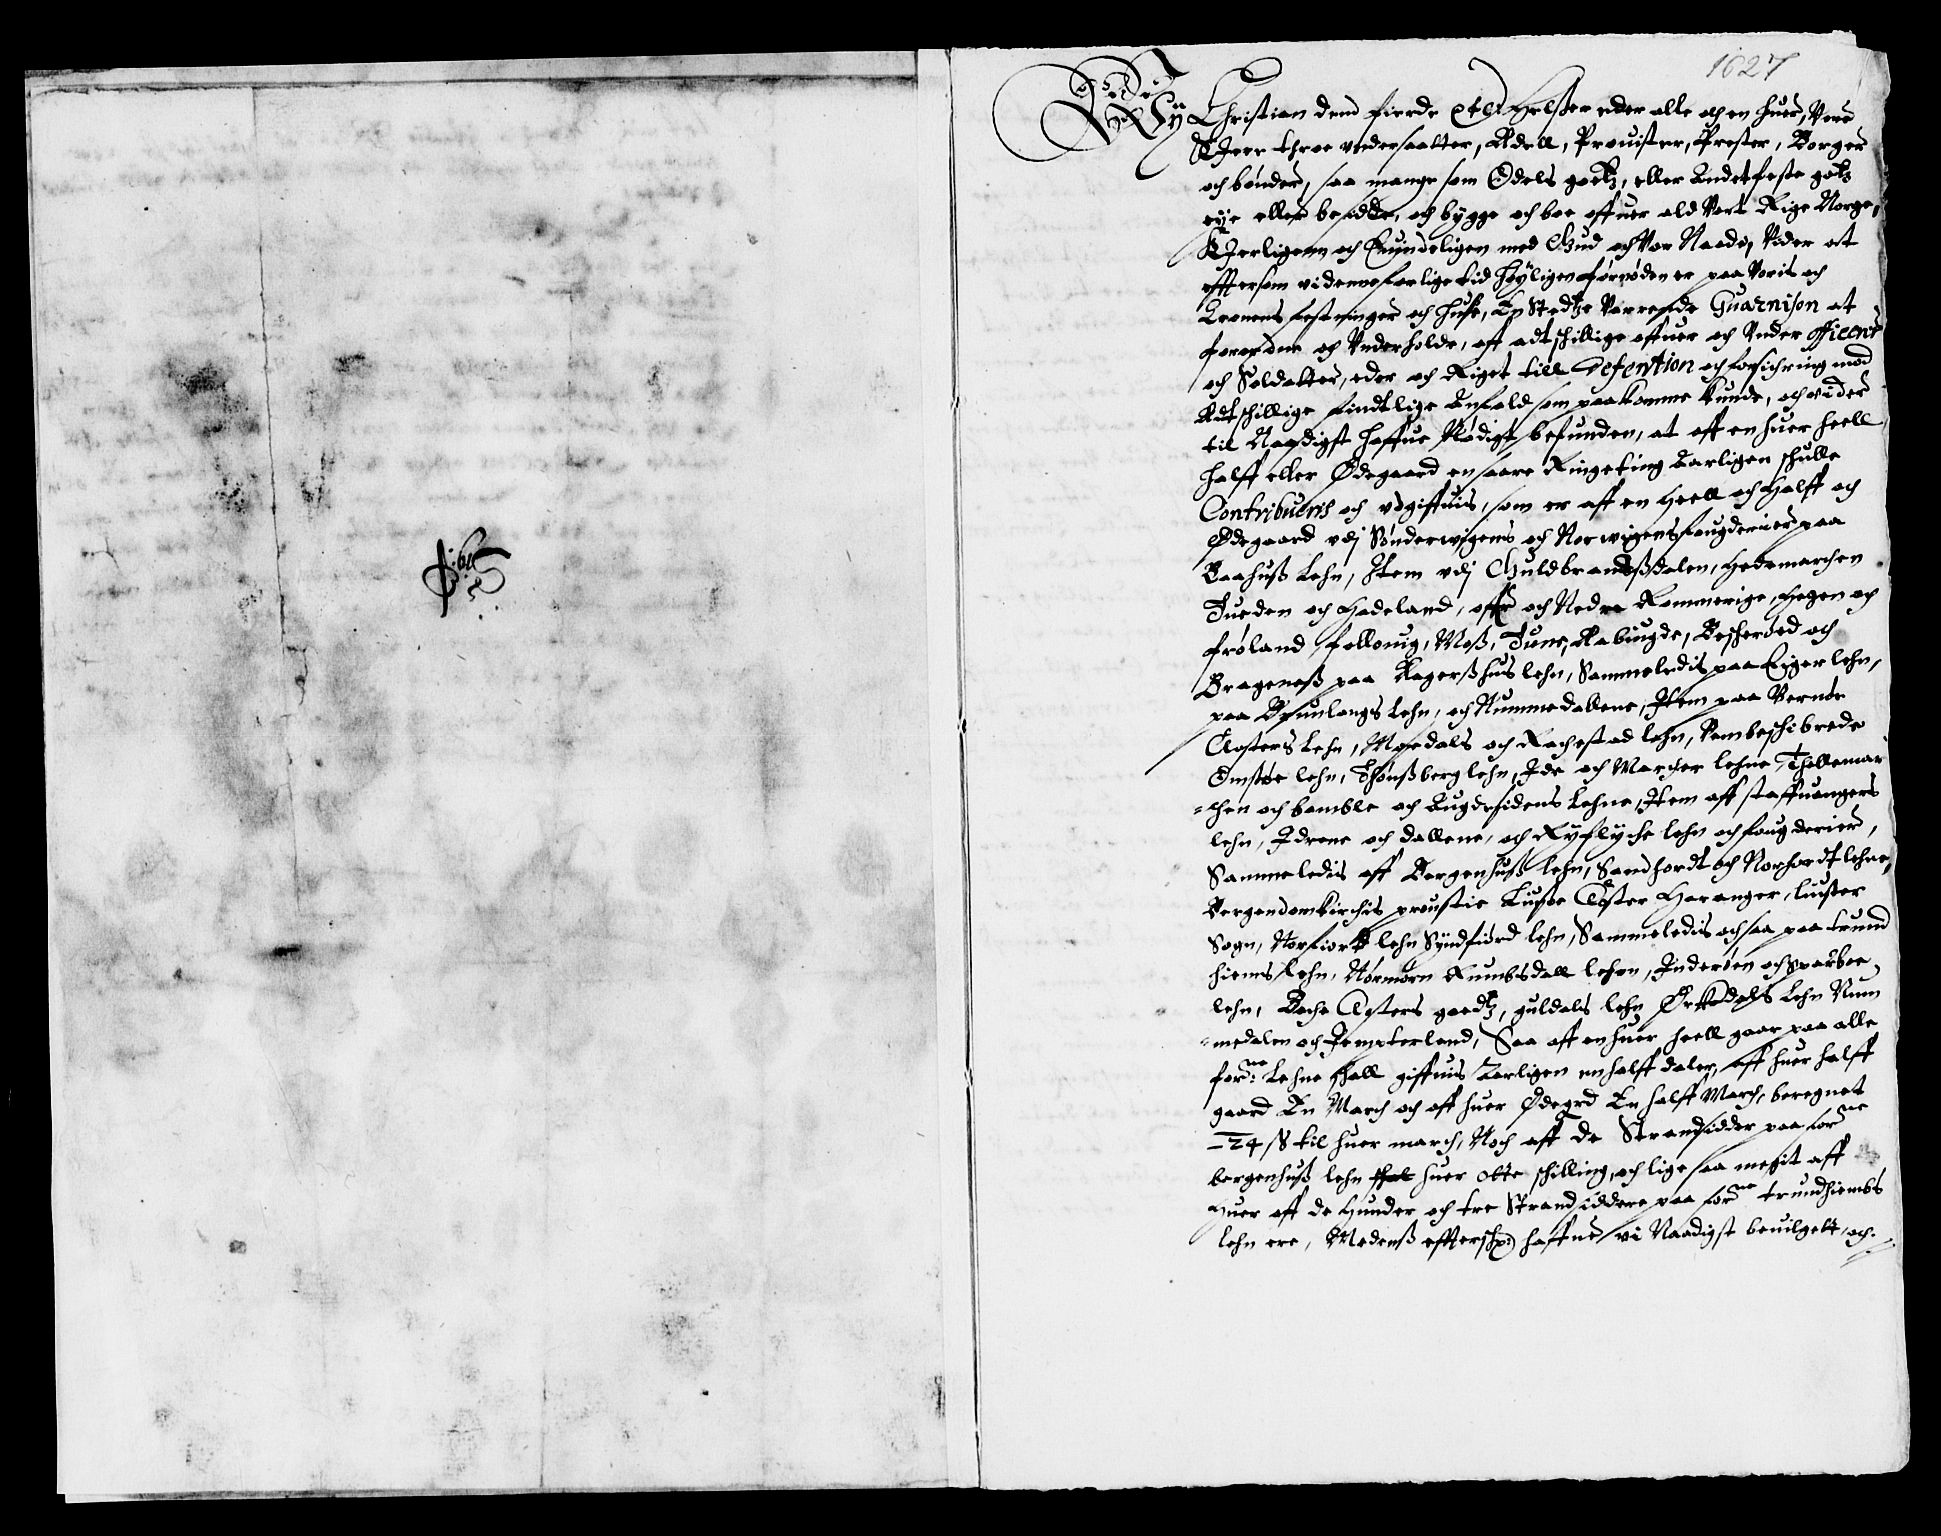 1627
Wij Christian dend fierde etc: Helser eder alle och en huer, Vore
Kjere throe vndersaatter, Adell, Prouister, Prester, Borger
och bønder, saa mange som Odels goetz, eller Andetfeste gotz
eye eller besidde, och bygge och boe offuer ald Vort Rige Norge,
Kjerligenn och Gunstligen med Gud och Vor Naade, Vider at
efftersom vi denne farlige tid høyligen fornøden er paa Voris och
Kronens festninger och huse, En Stedtze Varende Guarnison at
forordne och Vnderholde, aff adtschillige offuer och Vnder officerer
och Soldatter, eder och Riget till Defention och forsichring mod
Adtschillige findtlige Anfald som paakomme kunde, och vi der
til Naadigst haffue Nødigt befunden, at aff en huer heell
halff eller Ødegaard en saare Ringe ting Aarligen schulle
Contribueris och vdgiffuis, som er aff en Heell och Halff och
Ødegaard vdj Sønderwigens och Norwigens fougderier paa
Baahuß Lehn, Item vdj Guldbrandßdalen, Hedemarchen
Tueden och Hadeland, offre och Nedre Rommerige, Heggen och
frøland folloug, Moß, Tune, Aabiugde, Bescherød och
Brageneß paa Agerßhus lehn, Sammeledis paa Eiger lehn,
paa Brunlangs Lehn, och Nummedallene, Item paa Verne
Closters Lehn, Mordals och Rachestad lehn, Vembeschibrede
Omsøe lehn, Thønßberg lehn, Ide och Marcher lehne Thellemar
=chen och bamble och Augdesidens Lehne, Item aff staffuangers
lehn, Jedrene och dallene, och Ryfylche lehn och fougderier,
Sammeledis aff Bergenhuß lehn, Sundhordt och Norhordt lehne,
Bergendomkirchis proustie Lusøe Closter Haranger, luster
Sogn, Norfiord lehn Syndfiord lehn, Sammeledis ochsaa paa trund
hiems lehn, Normørn Rumbsdall lehen, Inderøen och sparboe
lehn, Bache Closters goedtz, guldals lehn Ørkedals Lehn Num
=medalen och Jempterland, Saa aff en huer heell gaar paa alle
forne: Lehne schall giffuis Aarligen en halff daler, aff huer halff
gaard En March och aff huer Ødegrd En halff March, beregnet
24 ß til huer march, Noch aff de Strandsidder paa forne
bergenhuß lehn huer otte schilling, och lige saa megit aff
Huer aff de Hunder och tre Strandsiddere paa forne trundhiembs
lehn ere, Medenß haffue vi Naadigst beuilgett, och